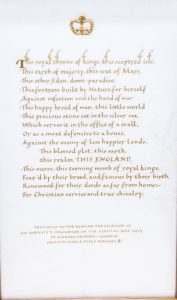 This royal throne of kings, this sceptred isle,
This earth of majesty, this seat of Mars,
This other Eden, demi-paradise,
This fortress built by Nature for herself
Against infection and the hand of war
This happy breed of men, this little world
This precious stone set in the silver sea,
Which serves it in the office of a wall,
Or as a moat defensive to a house,
Against the envy of less happier lands,
This blessed plot, this earth,
this realm, THIS ENGLAND,
This nurse, this teeming womb of royal kings,
Fear'd by their breed, and famous by their birth,
Renowned for their deeds as far from home:-
For Christian service and true chivalry.